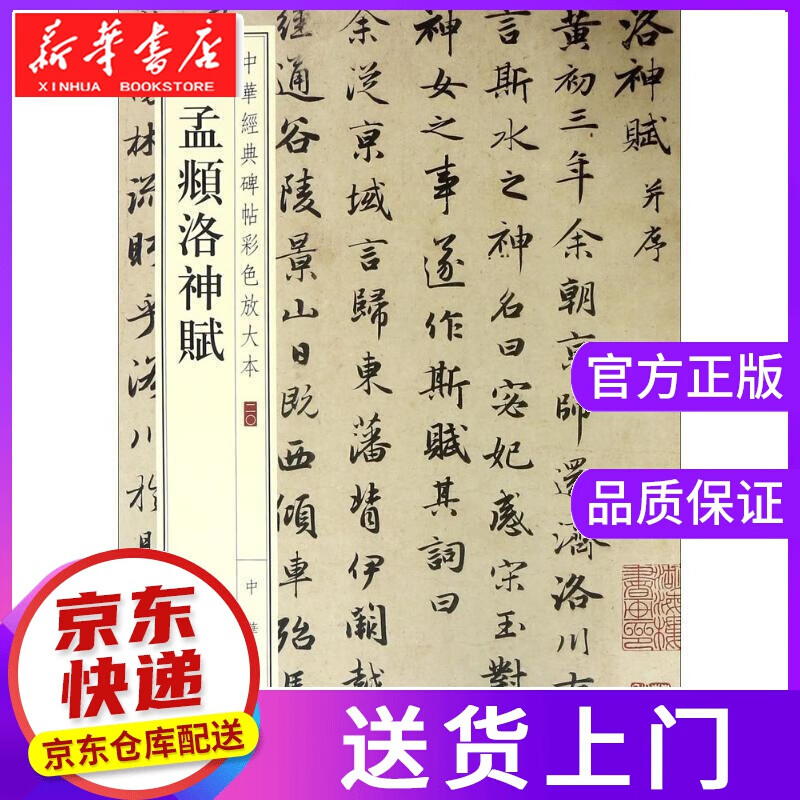 新華書店
XINHUA BOOKSTORE
中華經典碑帖彩色放大本
二〇
孟頫洛神賦
中華
洛神賦 并序
黃初三年余朝京師還濟洛川古
言斯水之神名曰宓妃感宋玉對
神女之事遂作斯賦其詞曰
余從京域言歸東藩背伊闕越
經通谷陵景山日既西傾車殆馬
林流眄乎洛川於是
官方正版
品质保证
京东
快递
京东仓库配送
送货上门